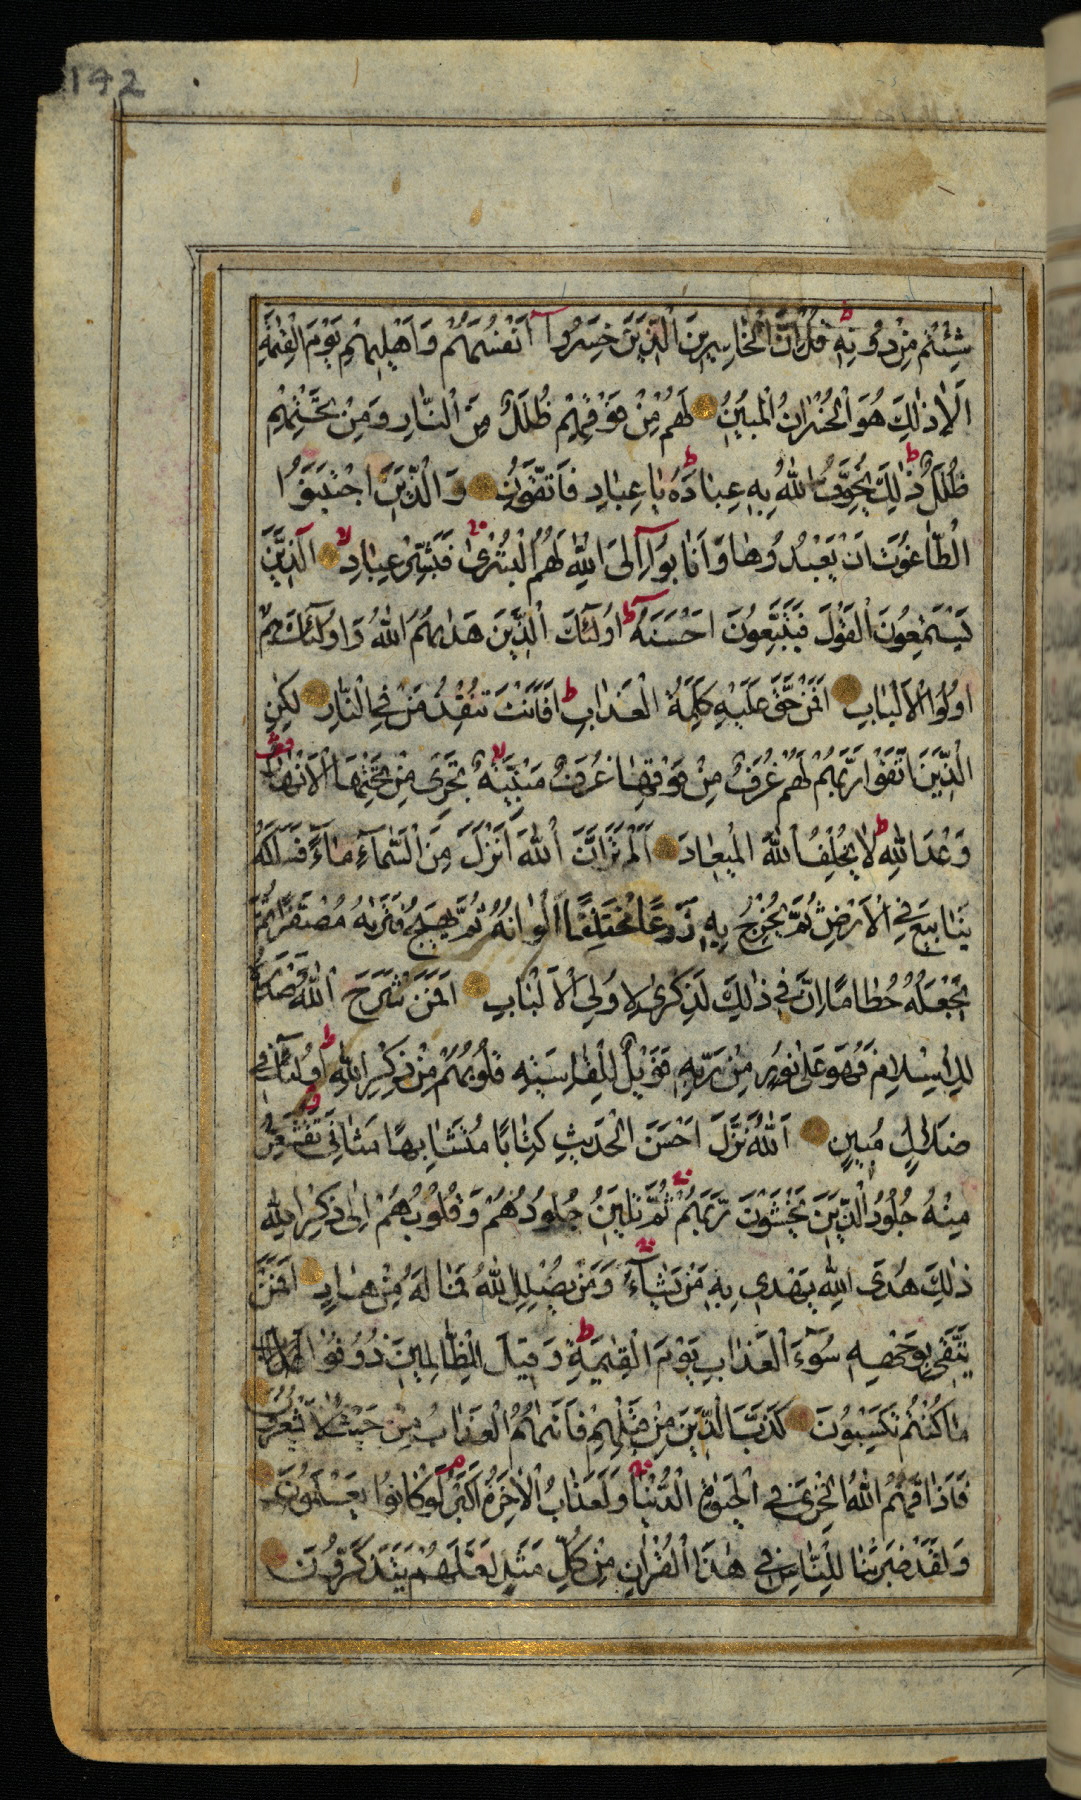 192
شِئْتُمْ مِنْ دُونِهِ قُلْ اِنَّ الْخَاسِرِينَ الَّذِينَ خَسِرُوا اَنْفُسَهُمْ وَاَهْلِيهِمْ يَوْمَ الْقِيٰمَةِ
اَلَا ذٰلِكَ هُوَ الْخُسْرَانُ الْمُبِينُ لَهُمْ مِنْ فَوْقِهِمْ ظُلَلٌ مِنَ النَّارِ وَمِنْ تَحْتِهِمْ
ظُلَلٌ ذٰلِكَ يُخَوِّفُ اللّٰهُ بِهِ عِبَادَهُ يَا عِبَادِ فَاتَّقُونِ وَالَّذِينَ اجْتَنَبُوا
الطَّاغُوتَ اَنْ يَعْبُدُوهَا وَاَنَابُوا اِلَى اللّٰهِ لَهُمُ الْبُشْرٰى فَبَشِّرْ عِبَادِ الَّذِينَ
يَسْتَمِعُونَ الْقَوْلَ فَيَتَّبِعُونَ اَحْسَنَهُ اُولٰئِكَ الَّذِينَ هَدٰيهُمُ اللّٰهُ وَاُولٰئِكَ هُمْ
اُولُوا الْاَلْبَابِ اَفَمَنْ حَقَّ عَلَيْهِ كَلِمَةُ الْعَذَابِ اَفَاَنْتَ تُنْقِذُ مَنْ فِي النَّارِ لٰكِنِ
الَّذِينَ اتَّقَوْا رَبَّهُمْ لَهُمْ غُرَفٌ مِنْ فَوْقِهَا غُرَفٌ مَبْنِيَّةٌ تَجْرِي مِنْ تَحْتِهَا الْاَنْهَارُ
وَعْدَ اللّٰهِ لَا يُخْلِفُ اللّٰهُ الْمِيعَادَ اَلَمْ تَرَ اَنَّ اللّٰهَ اَنْزَلَ مِنَ السَّمَآءِ مَآءً فَسَلَكَهُ
يَنَابِيعَ فِي الْاَرْضِ ثُمَّ يُخْرِجُ بِهِ زَرْعًا مُخْتَلِفًا اَلْوَانُهُ ثُمَّ يَهِيجُ فَتَرٰيهُ مُصْفَرًّا ثُمَّ
يَجْعَلُهُ حُطَامًا اِنَّ فِي ذٰلِكَ لَذِكْرٰى لِاُولِي الْاَلْبَابِ اَفَمَنْ شَرَحَ اللّٰهُ صَدْرَهُ
لِلْاِسْلَامِ فَهُوَ عَلٰى نُورٍ مِنْ رَبِّهِ فَوَيْلٌ لِلْقَاسِيَةِ قُلُوبُهُمْ مِنْ ذِكْرِ اللّٰهِ اُولٰئِكَ فِي
ضَلَالٍ مُبِينٍ اَللّٰهُ نَزَّلَ اَحْسَنَ الْحَدِيثِ كِتَابًا مُتَشَابِهًا مَثَانِيَ تَقْشَعِرُّ
مِنْهُ جُلُودُ الَّذِينَ يَخْشَوْنَ رَبَّهُمْ ثُمَّ تَلِينُ جُلُودُهُمْ وَقُلُوبُهُمْ اِلٰى ذِكْرِ اللّٰهِ
ذٰلِكَ هُدَى اللّٰهِ يَهْدِي بِهِ مَنْ يَشَآءُ وَمَنْ يُضْلِلِ اللّٰهُ فَمَا لَهُ مِنْ هَادٍ اَفَمَنْ
يَتَّقِي بِوَجْهِهِ سُوٓءَ الْعَذَابِ يَوْمَ الْقِيٰمَةِ وَقِيلَ لِلظَّالِمِينَ ذُوقُوا
مَا كُنْتُمْ تَكْسِبُونَ كَذَّبَ الَّذِينَ مِنْ قَبْلِهِمْ فَاَتٰيهُمُ الْعَذَابُ مِنْ حَيْثُ لَا يَشْعُرُونَ
فَاَذَاقَهُمُ اللّٰهُ الْخِزْيَ فِي الْحَيٰوةِ الدُّنْيَا وَلَعَذَابُ الْاٰخِرَةِ اَكْبَرُ لَوْ كَانُوا يَعْلَمُونَ
وَلَقَدْ ضَرَبْنَا لِلنَّاسِ فِي هٰذَا الْقُرْاٰنِ مِنْ كُلِّ مَثَلٍ لَعَلَّهُمْ يَتَذَكَّرُونَ